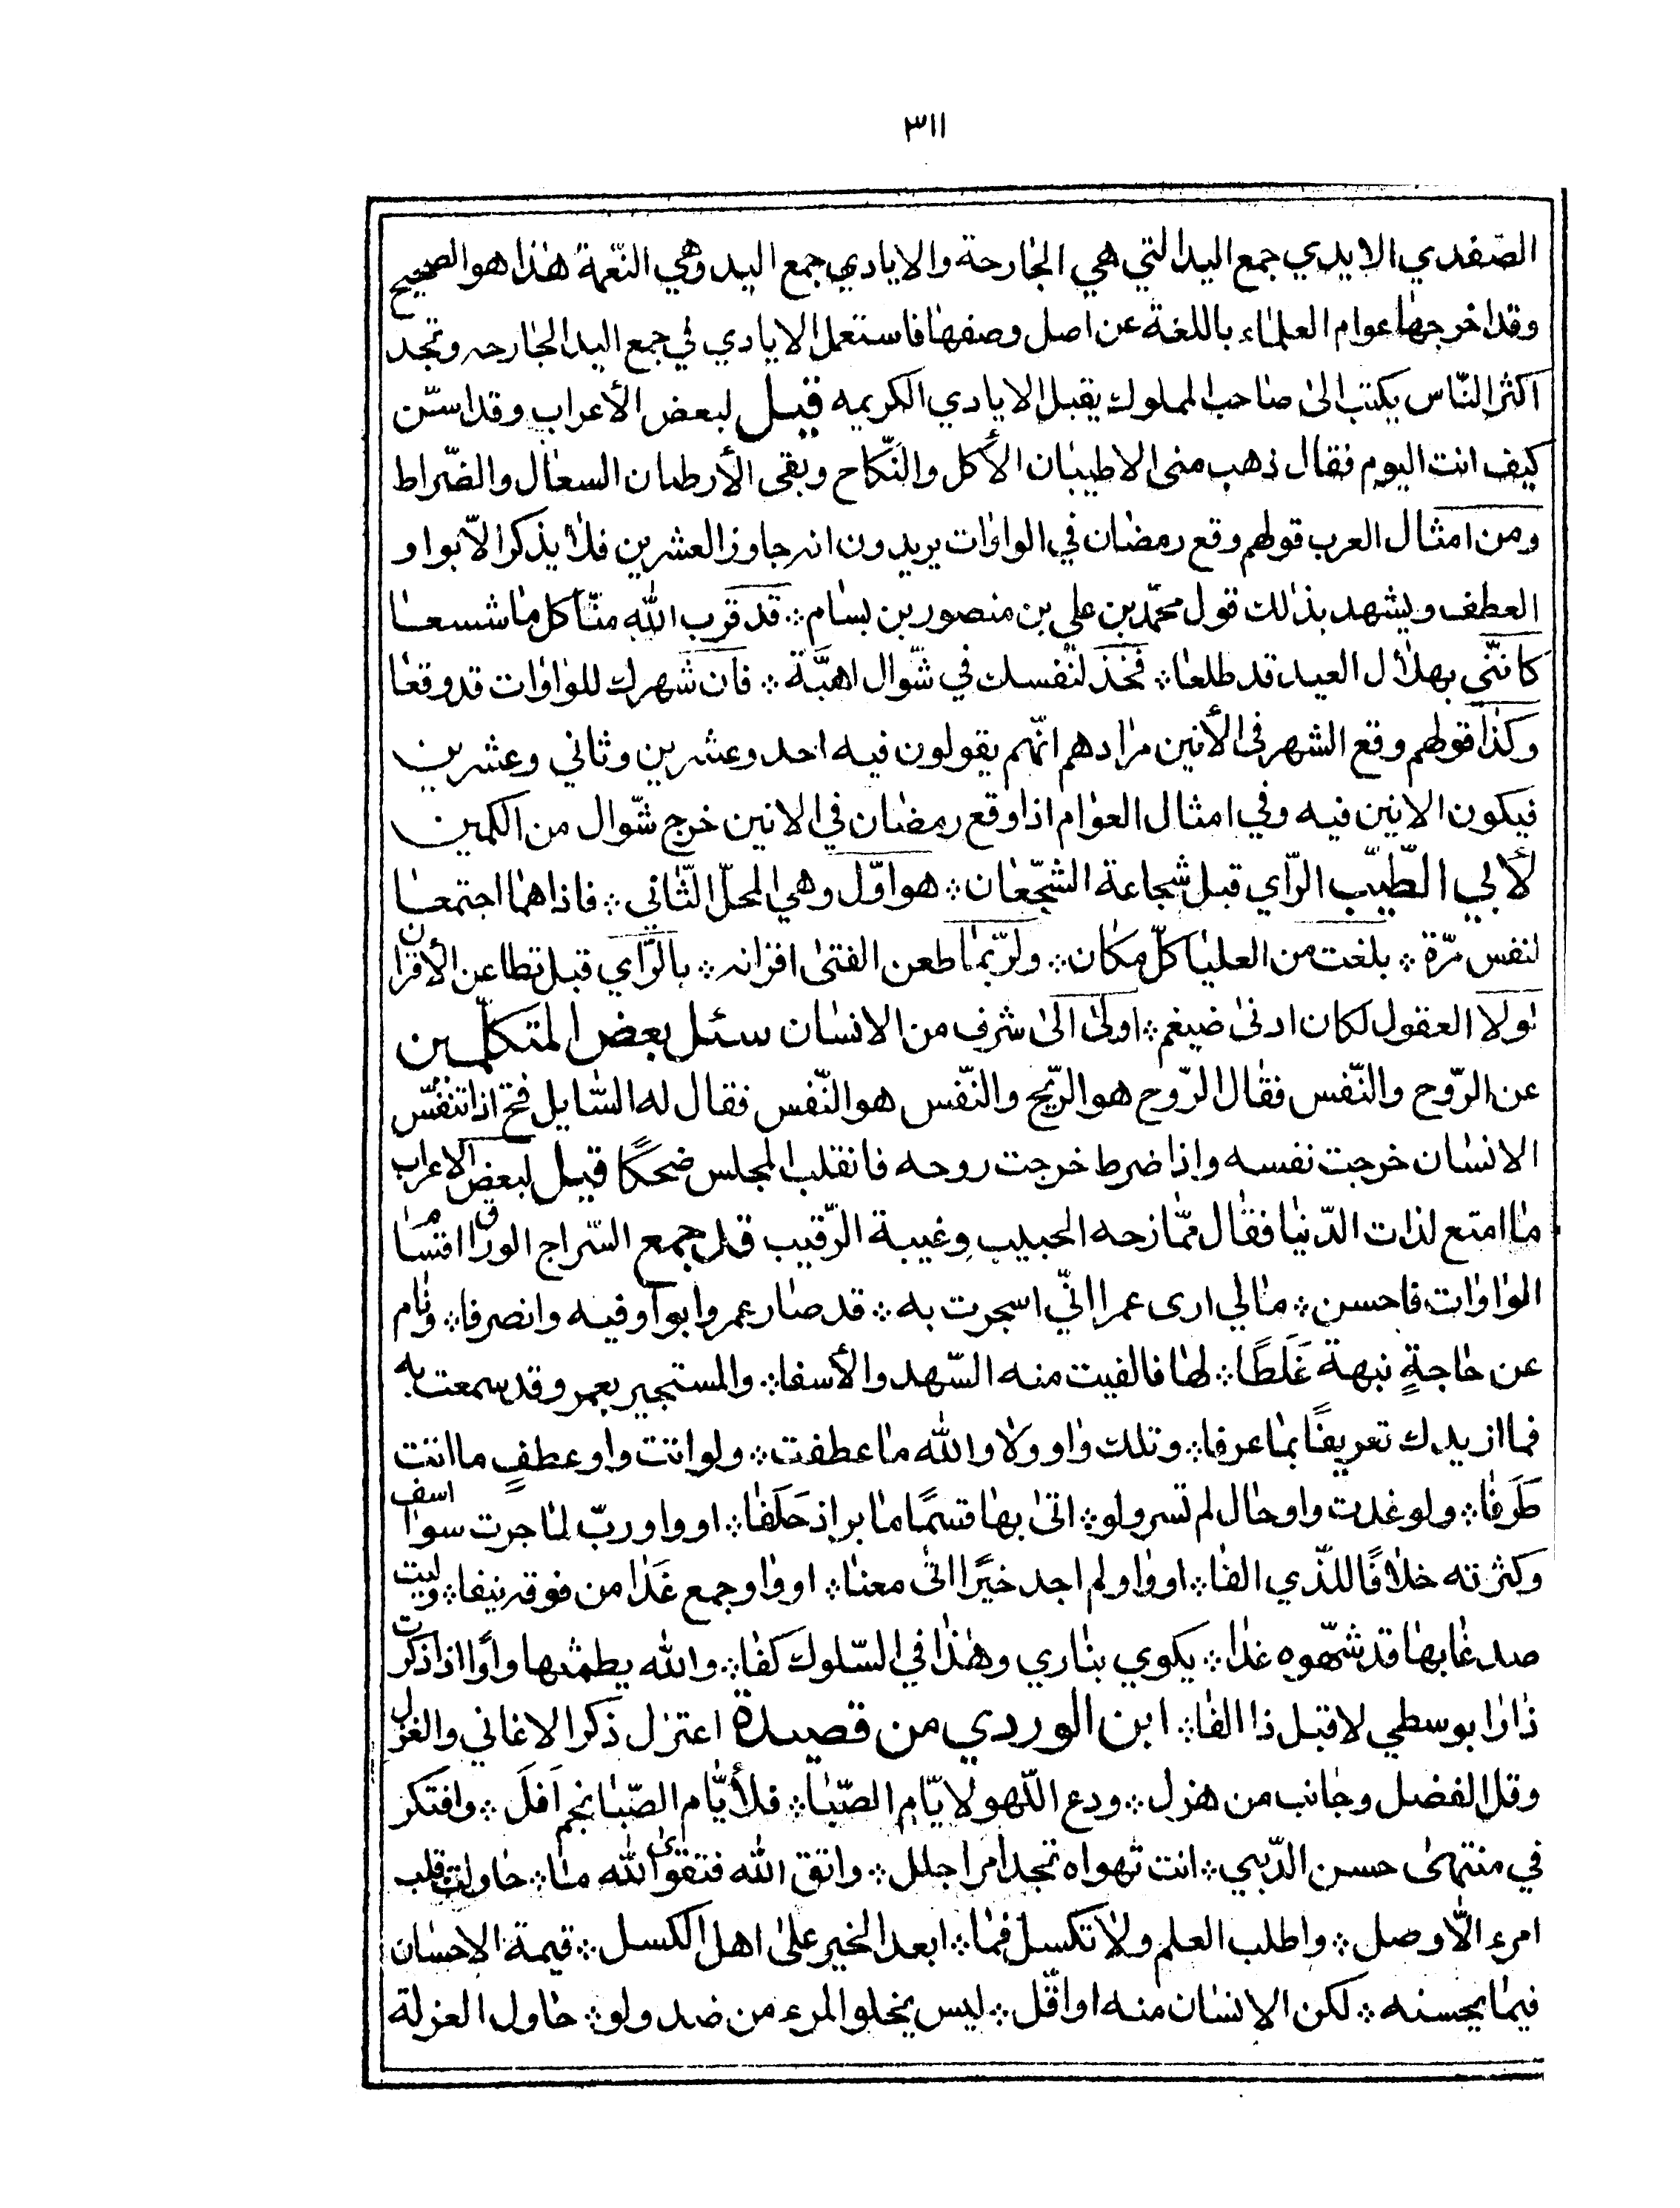 ٣١١
الصّفدي الايدي جمع اليد التي هي الجارحة والايادي جمع اليد وهي النّعمة هذا هو الصحيح
وقد اخرجها عوام العلماء باللغة عن اصل وصفها فاستعمل الايادي في جمع اليد الجارحه وتجد
اكثر النّاس يكتب الى صاحب المملوك يقبل الايادي الكريمه قيل لبعض الأعراب وقد اسنّ
كيف انت اليوم فقال ذهب منى الاطيبان الأكل والنّكاح وبقى الأرطبان السعال والضّراط
ومن امثال العرب قولهم وقع رمضان في الواوات يريدون انه جاوز العشرين فلا يذكر الّا بواو
العطف ويشهد بذلك قول محمّد بن علي بن منصور بن بسام ∴ قد قرب الله منّا كل ما شسعا
كانّني بهلال العيد قد طلعا ∴ فخذ لنفسك في شوّال اهبّة ∴ فان شهرك للواوات قد وقعا
وكذا قولهم وقع الشهر في الأنين مرادهم انّهم يقولون فيه احد وعشرين وثاني وعشرين
فيكون الانين فيه وفي امثال العوام اذا وقع رمضان في الانين خرج شوّال من الكمين
لأبي الطّيّب الرّاي قبل شجاعة الشجّعان ∴ هو اوّل وهي المحلّ الثّاني ∴ فاذا هما اجتمعا
لنفس مرّة ∴ بلغت من العليا كلّ مكان ∴ ولربّما طعن الفتى اقرانه ∴ بالرّاي قبل تطاعن الأقران
لولا العقول لكان ادنى ضيغم ∴ اولى الى شرف من الانسان سئل بعض المتكلّمين
عن الرّوح والنّفس فقال الرّوح هو الرّيح والنّفس هو النّفس فقال له السّايل فح اذا تنفّس
الانسان خرجت نفسه واذا ضرط خرجت روحه فانقلب المجلس ضحكًا قيل لبعض الاعراب
ما امتع لذات الدّنيا فقال ممّازحه الحبيب وغيبة الرّقيب قد جمع السّراج الورّاق اقسام
الواوات فاحسن ∴ مالي ارى عمرا انّي اسجرت به ∴ قد صار عمروا بواو فيه وانصرفا ∴ ونام
عن حاجةٍ نبهة غَلَطًا ∴ لها فالفيت منه السّهد والأسفا ∴ والمستجير بعمر وقد سمعت به
فما ازيدك تعريفًا بما عرفا ∴ وتلك واو ولا والله ما عطفت ∴ ولو اتت واو عطفٍ ما اتت
طَرَفا ∴ ولو غدت واو حال لم تسر ولو ∴ اتى بها قسمًا ما بر اذ حَلَفا ∴ او واو ربّ لما جرت سوا اسف
وكثرته خلافًا للّذي الفا ∴ او واو لم اجد خيًرا اتى معنا ∴ او واو جمع غَدَا من فوقه نيفا ∴ وليت
صدغا بها قد شبّهوه غدا ∴ يكوي بناري وهذا في السّلوك كفا ∴ والله يطمثها واوًا اذا ذكرت
ذا را بوسطي لا قبل ذا الفا ∴ ابن الوردي من قصيدة اعتزل ذكر الاغاني والغزل
وقل الفضل وجانب من هزل ∴ ودع اللّهو لايّام الصّبا ∴ فلأيّام الصّبا نجم اَفَلَ ∴ وافتكر
في منتهى حسن الذّيي ∴ انت تهواه تجد امرا جلل ∴ واتق الله فتقوى الله ما ∴ حاولت قلب
امرء الّا وصل ∴ واطلب العلم ولا تكسل فما ∴ ابعد الخير على اهل الكسل ∴ قيمة الاحسان
فيما يحسنه ∴ لكن الانسان منه او اقّل ∴ ليس يخلو المرء من ضد ولو ∴ حاول العزلة